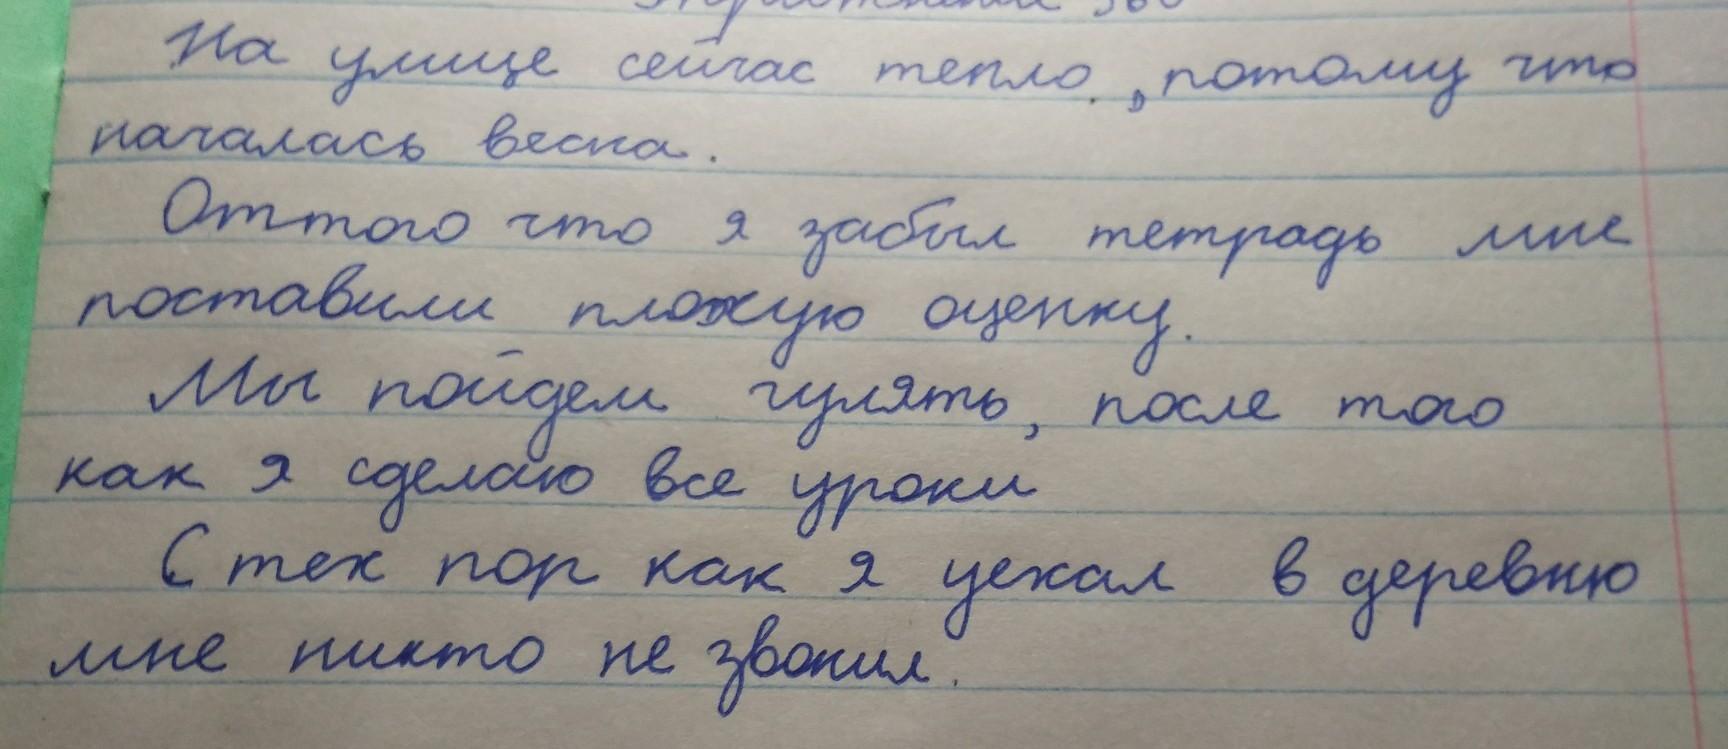 На улице сейчас тепло, потому что
началась весна.
Оттого что я забыл тетрадь мне
поставили плохую оценку.
Мы пойдем гулять, после того
как я сделаю все уроки
С тех пор как я уехал в деревню
мне никто не звонил.